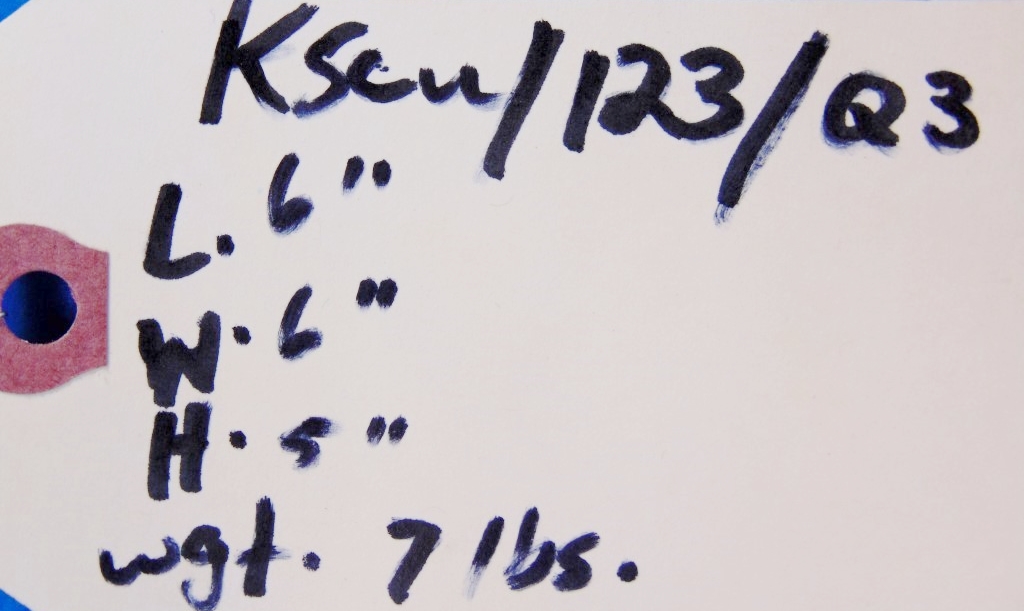 Kscu/123/Q3
L. 6"
W. 6"
H. 5"
wgt. 7 lbs.